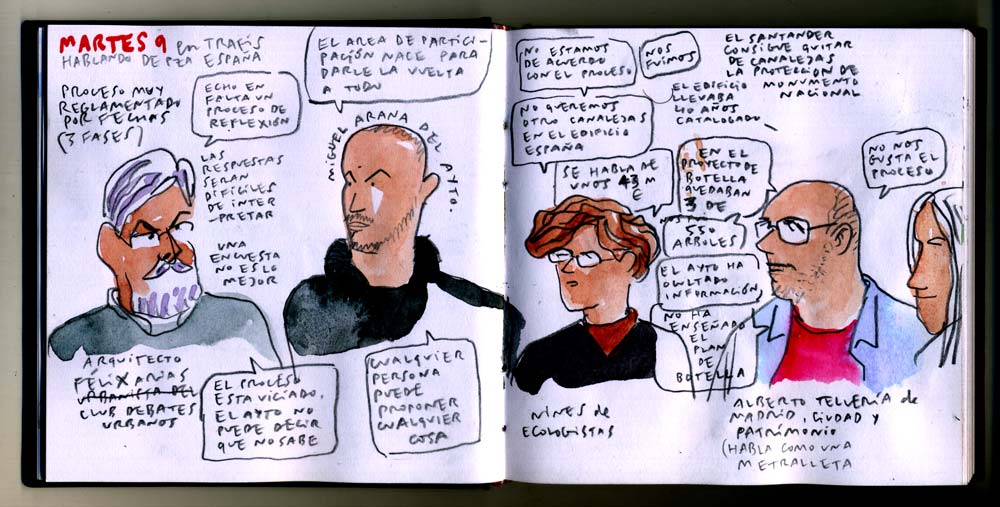 MARTES 9 en TRAFIS
HABLANDO DE PZA ESPAÑA
PROCESO MUY
REGLAMENTADO
POR FECHAS
(3 FASES)
ECHO EN
FALTA UN
PROCESO DE
REFLEXIÓN
LAS
RESPUESTAS
SERÁN
DIFÍCILES
DE INTER
-PRETAR
UNA
ENCUESTA
NO ES LO
MEJOR
ARQUITECTO
FÉLIX ARIAS
URBANISTA DEL
CLUB DEBATES
URBANOS
EL PROCESO
ESTA VICIADO,
EL AYTO NO
PUEDE DECIR
QUE NO SABE
EL AREA DE PARTICI-
PACIÓN NACE PARA
DARLE LA VUELTA
A TODO
MIGUEL ARANA DEL AYTO.
CUALQUIER
PERSONA
PUEDE
PROPONER
CUALQUIER
COSA
NO ESTAMOS
DE ACUERDO
CON EL PROCESO
NOS
FUIMOS
NO QUEREMOS
OTRO CANALEJAS
EN EL EDIFICIO
ESPAÑA
SE HABLA DE
UNOS 43 M
€
NINES de
ECOLOGISTAS
EL SANTANDER
CONSIGUE QUITAR
DE CANALEJAS
LA PROTECCIÓN DE
MONUMENTO
NACIONAL
EL EDIFICIO
LLEVABA
40 AÑOS
CATALOGADO
EN EL
PROYECTO DE
BOTELLA
QUEDABAN
3 DE
550
ARBOLES
EL AYTO HA
OCULTADO
INFORMACIÓN
NO HA
ENSEÑADO
EL
PLAN
DE
BOTELLA
NO NOS
GUSTA EL
PROCESO
ALBERTO TELLERÍA de
MADRID, CIUDAD Y
PATRIMONIO
(HABLA COMO UNA
METRALLETA